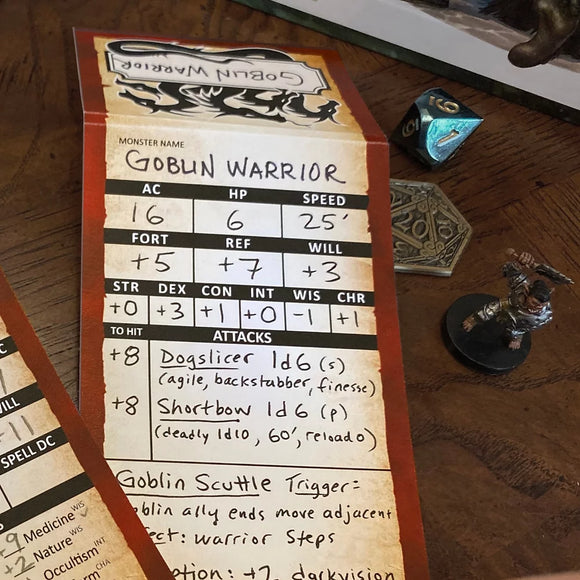 GOBLIN WARRIOR
MONSTER NAME
GOBLIN WARRIOR
AC HP SPEED
16 6 25'
FORT REF WILL
+5 +7 +3
STR DEX CON INT WIS CHR
+0 +3 +1 +0 -1 +1
TO HIT ATTACKS
+8 Dogslicer 1d6 (s)
(agile, backstabber, finesse)
+8 Shortbow 1d6 (p)
(deadly 1d10, 60', reload 0)
Goblin Scuttle Trigger=
ally ends move adjacent
Warrior Steps
+2 darkvision
SPELL DC
Medicine WIS
+2 Nature WIS
Occultism INT
CHA